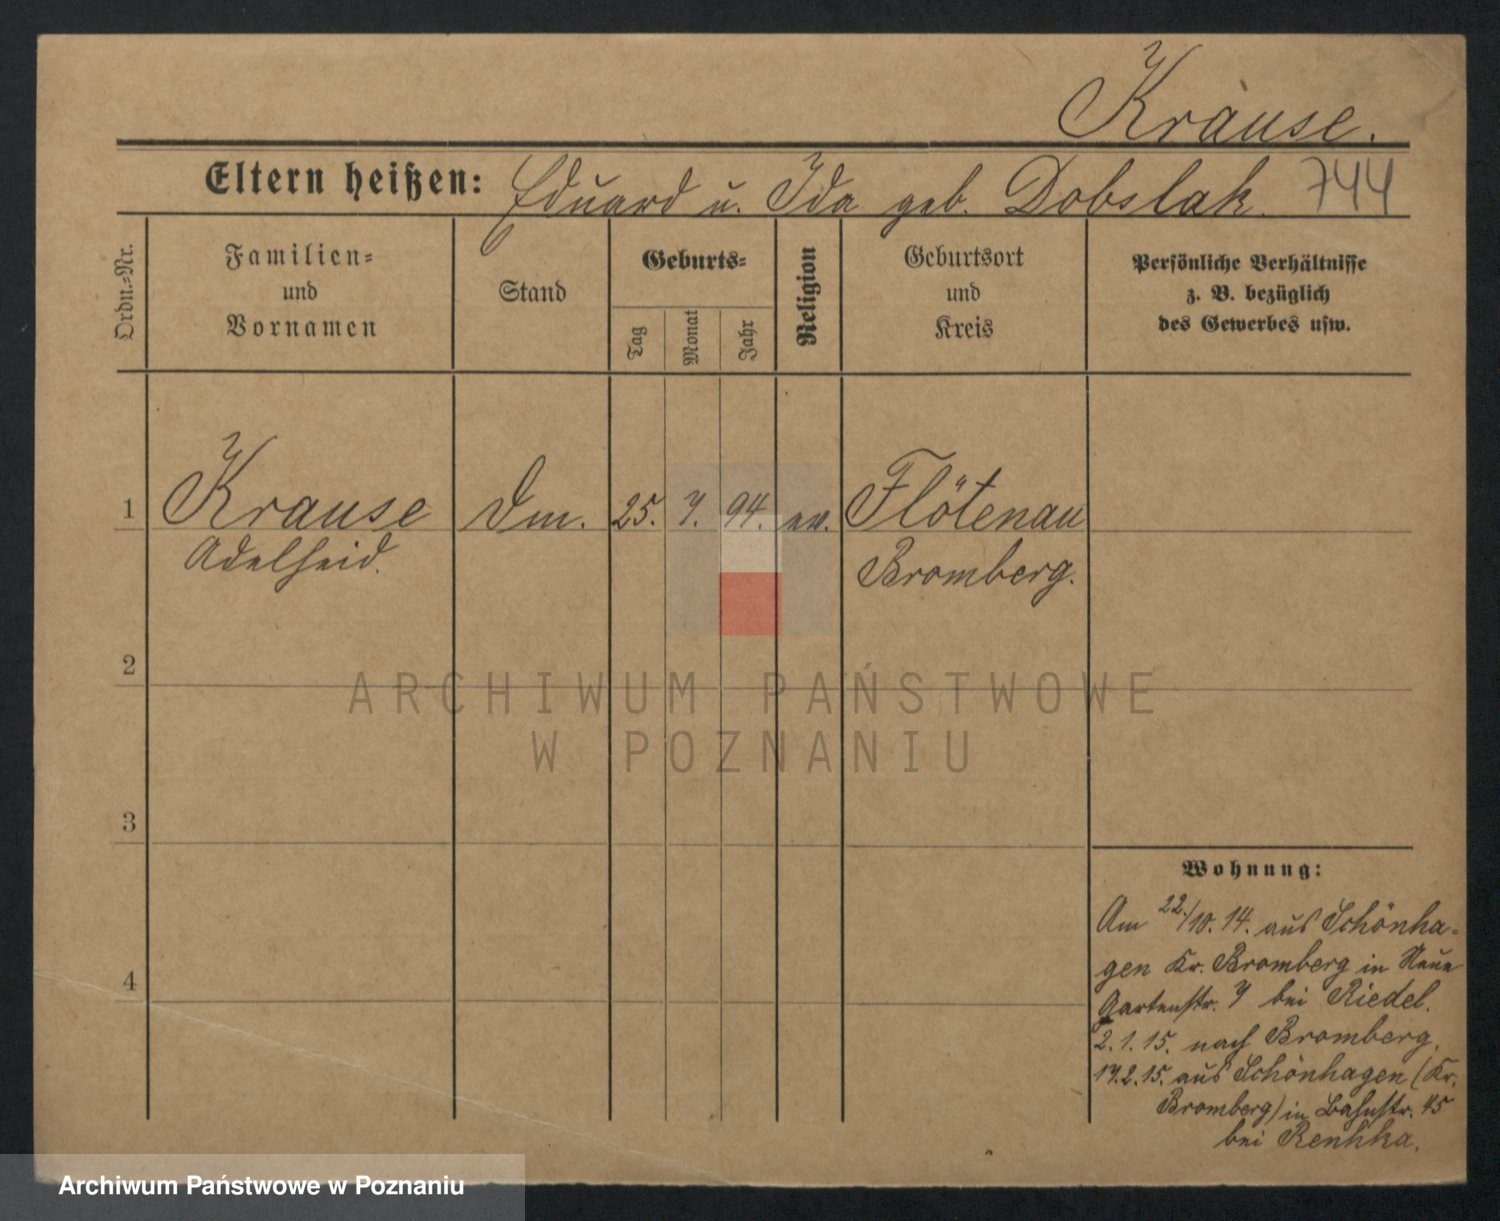 Krause.
Eltern heißen: Eduard u. Ida geb. Dobslak. 744
Ordn.-Nr.
Familien-
und
Vornamen
Stand
Geburts-
Tag
Monat
Jahr
Religion
Geburtsort
und
Kreis
Persönliche Verhältnisse
z. B. bezüglich
des Gewerbes usw.
1 Krause Dm. 25. 7. 94. ev. Flötenau
Adelheid. Bromberg.
2
ARCHIWUM PAŃSTWOWE
W POZNANIU
3
Wohnung:
Am 22./10. 14. aus Schönha-
gen Kr. Bromberg in Neue
4
Gartenstr. 7 bei Riedel.
2. 1. 15. nach Bromberg.
17. 2. 15. aus Schönhagen (Kr.
Bromberg) in Bahnstr. 45
bei
Archiwum Państwowe w Poznaniu